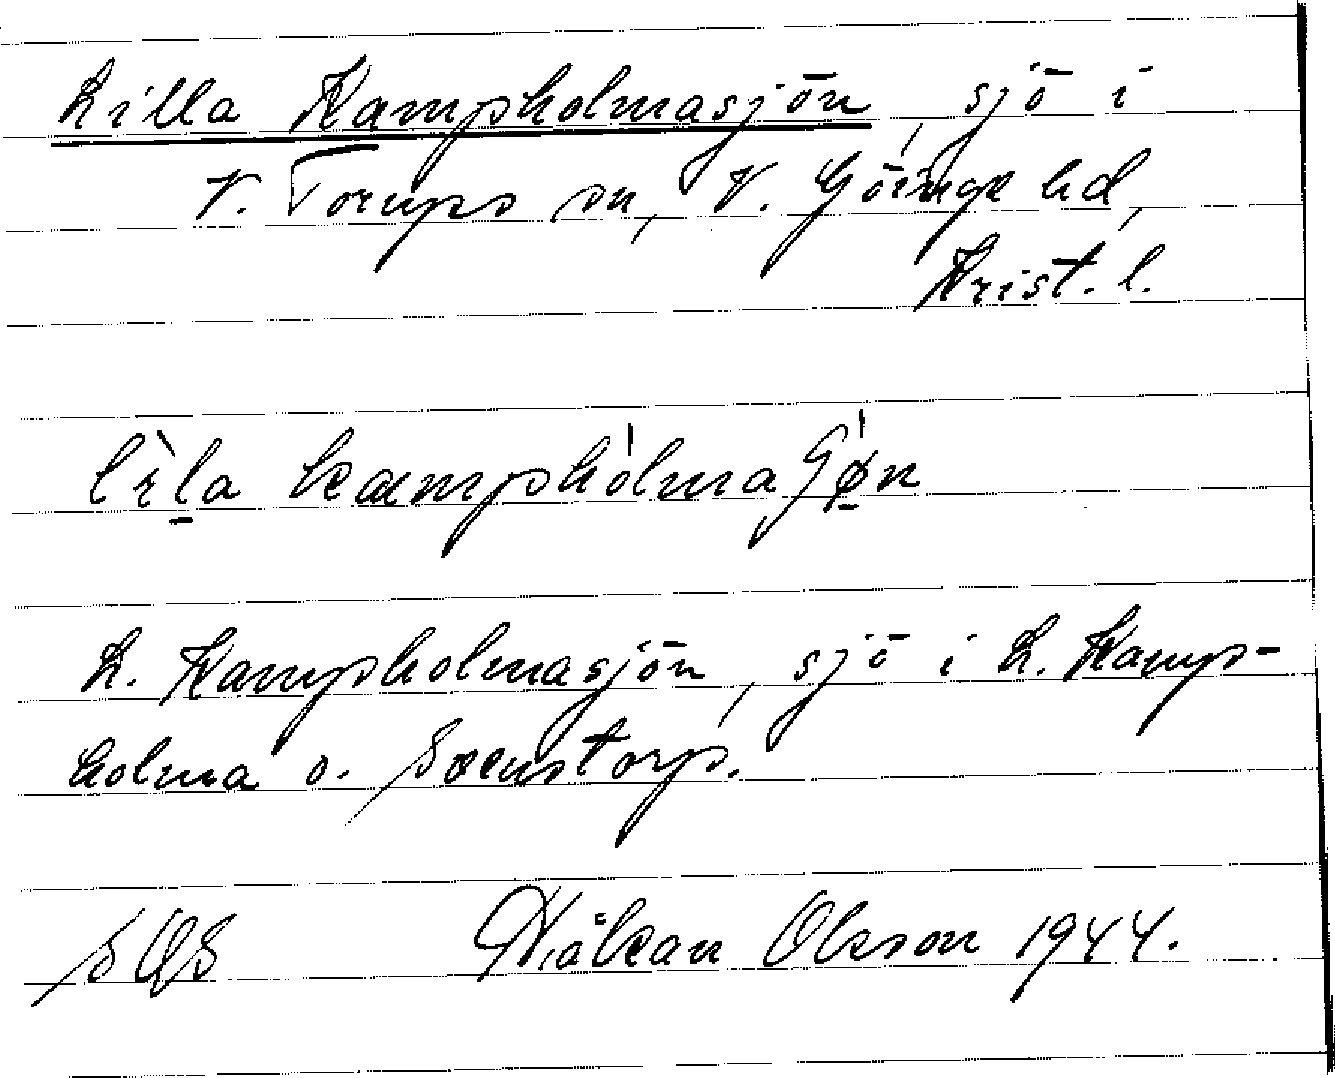 Lilla Kampholmasjön, sjö i
V. Torups sn, V. Göinge hd,
Krist. l.
L. Kampholmasjön, sjö i L. Kamp-
holma o. Svenstorp.
SOS Håkan Olsson 1944.